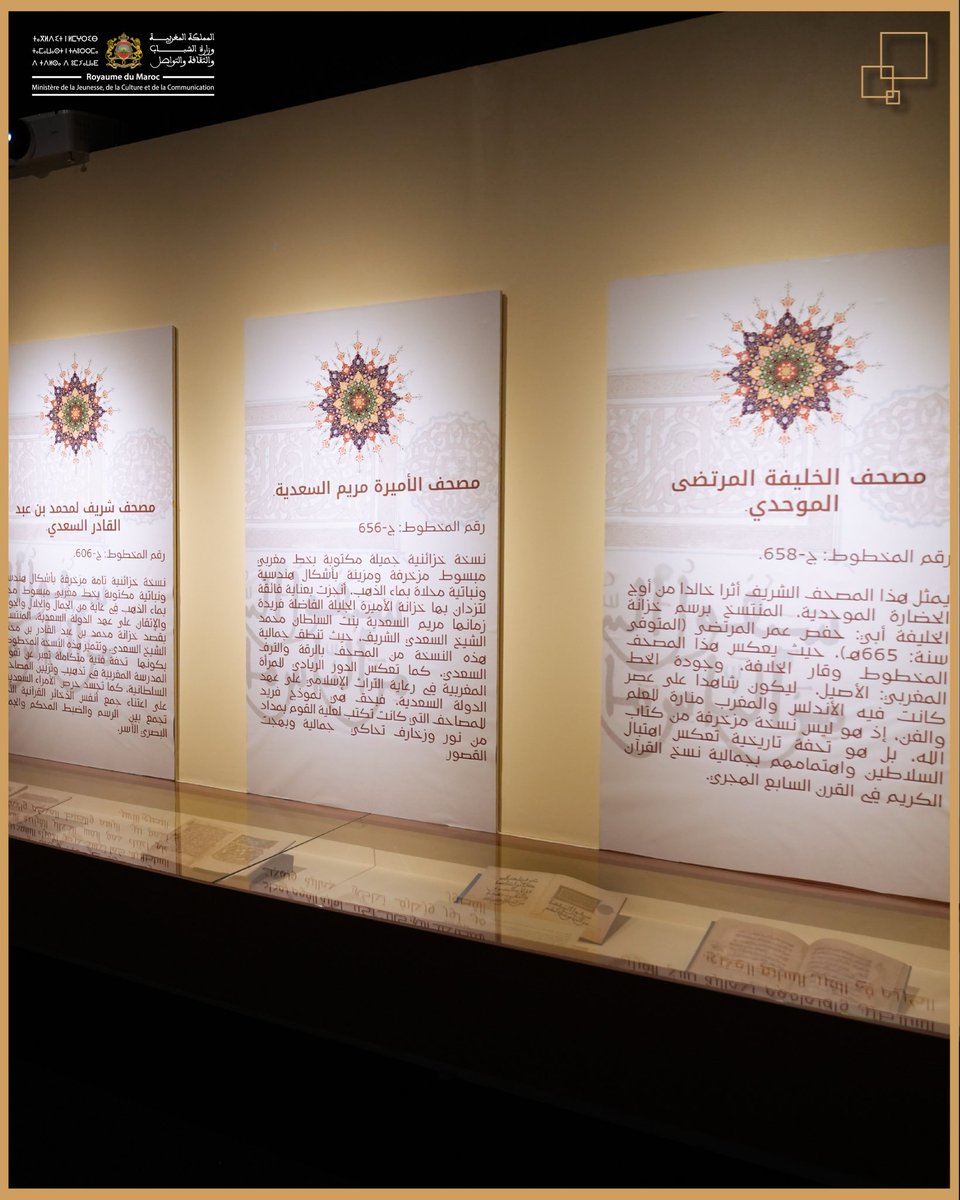 ⵜⴰⴳⵍⴷⵉⵜ ⵏ ⵍⵎⵖⵔⵉⴱ
المملكة المغربية
وزارة الشباب
والثقافة والتواصل
Royaume du Maroc
Ministère de la Jeunesse, de la Culture et de la Communication
مصحف الخليفة المرتضى
الموحدي.
رقم المخطوط: ج-658.
يمثل هذا المصحف الشريف أثرا خالدا من أوج
الحضارة الموحدية، المنتسخ برسم خزانة
الخليفة أبي: حفص عمر المرتضى (المتوفى
سنة: 665هـ)، حيث يعكس هذا المصحف
المخطوط وقار الخلافة، وجودة الخط
المغربي: الأصيل، ليكون شاهدا على عصر
كانت فيه الأندلس والمغرب منارة للعلم
والفن، إذ هو ليس نسخة مزخرفة من كتاب
الله، بل هو تحفة تاريخية تعكس اهتبال
السلاطين واهتمامهم بجمالية نسخ القرآن
الكريم في القرن السابع الهجري.
مصحف الأميرة مريم السعدية.
رقم المخطوط: ج-656
نسخة خزائنية جميلة مكتوبة بخط مغربي
مبسوط مزخرفة ومزينة بأشكال هندسية
ونباتية محلاة بماء الذهب، أنجزت بعناية فائقة
لتزدان بها خزانة الأميرة الجليلة الفاضلة فريدة
زمانها مريم السعدية بنت السلطان محمد
الشيخ السعدي الشريف، حيث تنطف جمالية
هذه النسخة من المصحف بالرقة والترف
السعدي، كما تعكس الدور الريادي للمرأة
المغربية في رعاية التراث الإسلامي على عهد
الدولة السعدية، فبحف هي نموذج فريد
للمصاحف التي كانت تكتب لعلية القوم بمداد
من نور وزخارف تحاكي جمالية وبهجت
القصور
مصحف شريف لمحمد بن عبد
القادر السعدي.
رقم المخطوط: ج-606.
نسخة خزائنية تامة مزخرفة بأشكال هندسية
ونباتية مكتوبة بخط مغربي مبسوط
بماء الذهب في غاية من الجمال والجلال
والإتقان على عهد الدولة السعدية،
بقصد خزانة محمد بن عبد القادر بن
الشيخ السعدي، وتتميز هذه النسخة
بكونها تحفة فنية متكاملة تعبر عن
المدرسة المغربية في تذهيب وتزيين
السلطانية، كما تجسد حرص الأمراء
على اعتناء جمع أنفس الذخائر القرآنية
تجمع بين الرسم والضبط المحكم
البصري الآسر.